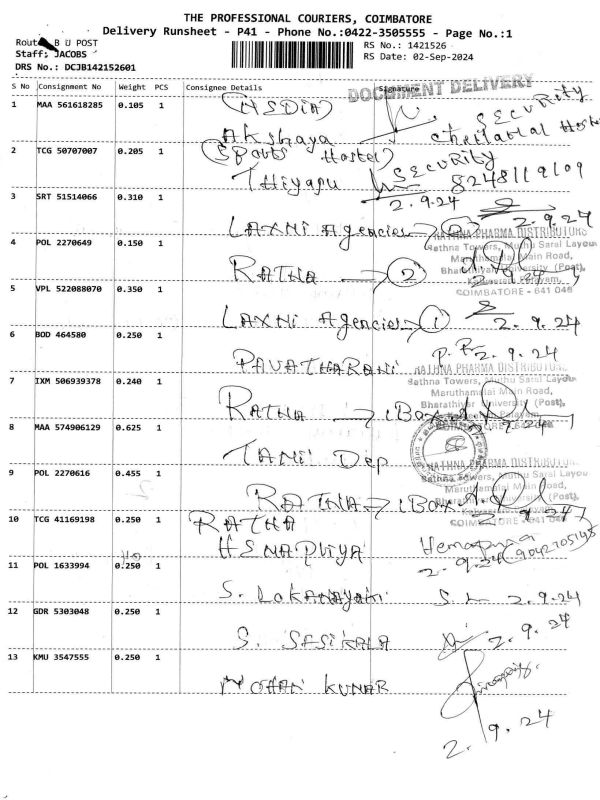 THE PROFESSIONAL COURIERS, COIMBATORE
Delivery Runsheet - P41 - Phone No.:0422-3505555 - Page No.:1
B U POST
Staff: JACOBS
DRS No.: DCJB142152601
RS No.: 1421526
RS Date: 02-Sep-2024
DOCUMENT DELIVERY
S No Consignment No Weight PCS Consignee Details Signature
1 MAA 561618285 0.105 1
Akshaya
SECURITY
2 TCG 50707007 0.205 1
(Sports Hostel)
SECURITY
8248119109
2.9.24
3 SRT 51514066 0.310 1
Laxmi Agencies 2.9.24
4 POL 2270649 0.150 1
RATHNA PHARMA DISTRIBUTORS
Rathna Towers, Muthu Saral Layout
Maruthamalai Main Road,
Bharathiyar University (Post),
COIMBATORE - 641 046
RATNA 2 2.9.24
5 VPL 522088070 0.350 1
Laxmi Agencies 1 2.9.24
6 BOD 464580 0.250 1
PAVATHARANI P. P 2.9.24
7 IXM 506939378 0.240 1
RATHNA PHARMA DISTRIBUTORS
Rathna Towers, Muthu Saral Layout
Maruthamalai Main Road,
Bharathiyar University (Post),
RATNA 1 Box
8 MAA 574906129 0.625 1
TAMIL Dep
9 POL 2270616 0.455 1
RATHNA PHARMA DISTRIBUTORS
Rathna Towers, Muthu Saral Layout
Maruthamalai Main Road,
Bharathiyar University (Post),
COIMBATORE - 641 046
RATNA 1 Box
10 TCG 41169198 0.250 1
RATHA
HEMAPRIYA Hemapriya
2.9.24 9042705145
11 POL 1633994 0.250 1
S. LOKANAYAKI S. L 2.9.24
12 GDR 5303048 0.250 1
S. SASIKALA 2.9.24
13 KMU 3547555 0.250 1
MOHAN KUMAR
2.9.24